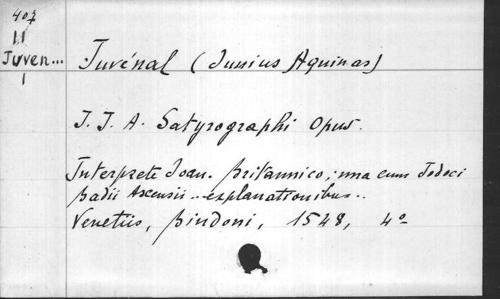 407
II
Juven...
I
Juvénal (Junius Aquinas)
J. J. A. Satyrographi Opus.
Interprete Joan. Britannico; una cum Jodoci
Badii Ascensii.. explanationibus..
Venetiis, Bindoni, 1548, 4o